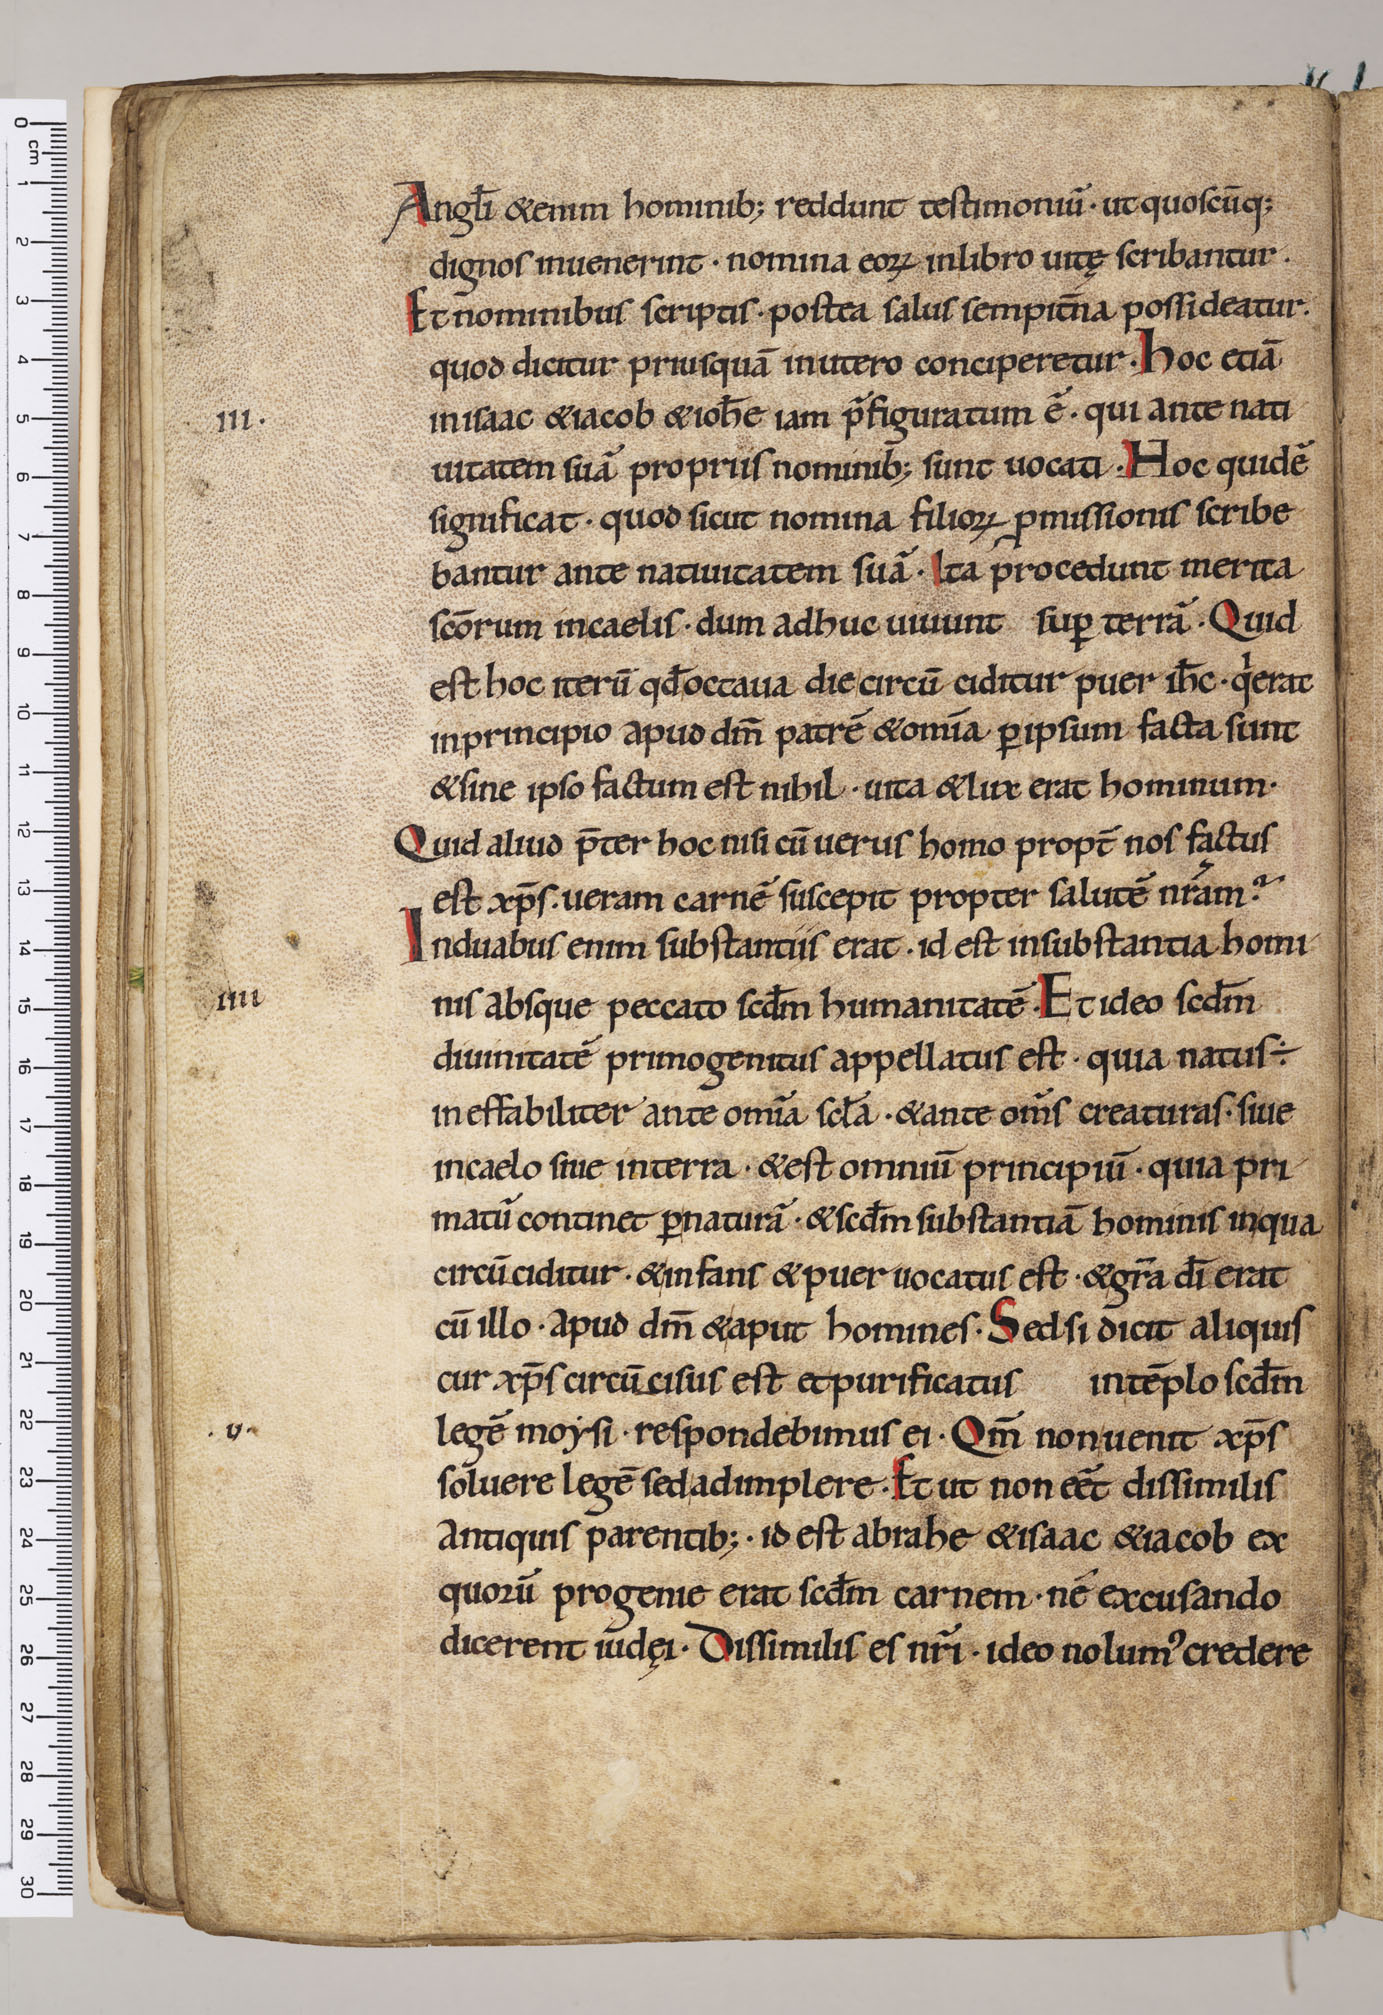 Angli̅ &enim hominib; reddunt testimoniu̅ · ut quoscu̅q;
dignos inuenerint · nomina eoꝝ inlibro uitę scribantur .
Et nominibus scriptis · postea salus sempit̅na possideatur.
quod dicitur priusqua̅ inutero conciperetur · hoc etia̅
III. inisaac &iacob &ioh̅e iam p̅figuratum e̅ · qui ante nati
uitatem sua̅ propriis nominib; sunt uocati · Hoc quide̅
significat · quod sicut nomina filioꝝ ꝓmissionis scribe
bantur ante natiuitatem sua̅ · Ita p̅rocedunt merita
sc̅orum incaelis · dum adhuc uiuunt suꝑ terra̅ · Quid
est hoc iteru̅ qd̅ octaua die circu̅ciditur puer ih̅c · qͥ erat
inprincipio apud dm̅ patre̅ &om̅ia ꝑipsum facta sunt
&sine ipso factum est nihil · uita &lux erat hominum·
Quid aliud p̅ter hoc nisi cu̅ uerus homo propt̅ nos factus
est xp̅s · ueram carne̅ suscepit propter salute̅ nr̅am ?
Induabus enim substantiis erat · id est insubstantia homi
IIII nis absque peccato scd̅m humanitate̅ · Et ideo scd̅m
diuinitate̅ primogenitus appellatus est · quia natus ÷
ineffabiliter ante om̅ia scl̅a · &ante om̅s creaturas · siue
incaelo siue interra · &est omniu̅ principiu̅ · quia pri
matu̅ continet ꝑnatura̅ · &scd̅m substantia̅ hominis inqua
circu̅ciditur · &infans &puer uocatus est · &gr̅a di̅ erat
cu̅ illo · apud dm̅ &aput homines · Sed si dicit aliquis
cur xp̅s circu̅cisus est etpurificatus inte̅plo scd̅m
.v. lege̅ moysi · respondebimus ei · Qm̅ non uenit xp̅s
soluere lege̅ sed adimplere · Et ut non ee̅t dissimilis
antiquis parentib; · id est abrahe &isaac &iacob ex
quoru̅ progenie erat scd̅m carnem · ne̅ excusando
dicerent iudęi · Dissimilis es nr̅i · ideo nolumꝰ credere